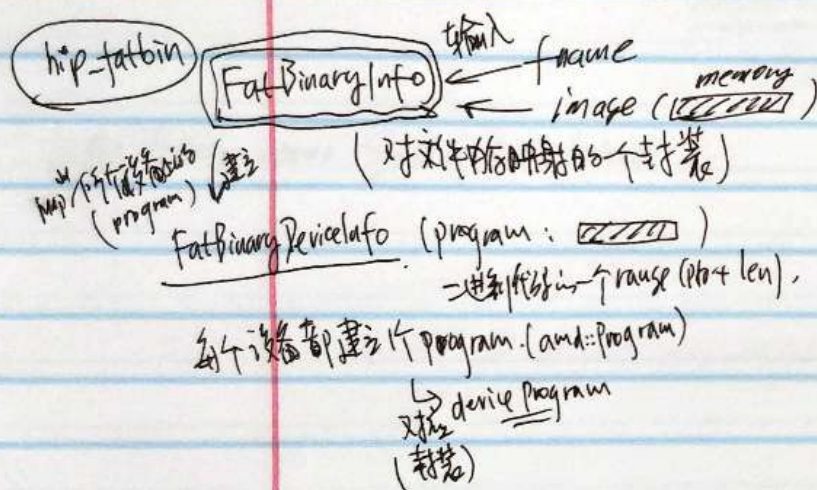 hip_fatbin
FatBinaryInfo 输入 ← fname
← image (memory)
(对文件内存映射的一个封装)
map出 个设备上的 建立
(program)
FatBinaryDeviceInfo (program: )
二进制代码的一个range (ptr+len).
每个设备都建立个program. (amd::Program)
↳ device program
对应
(封装)